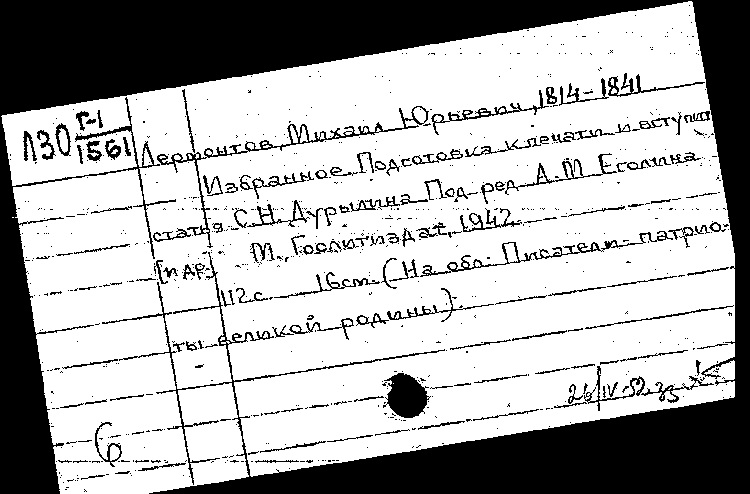 Л30 Г-1/1561
Лермонтов, Михаил Юрьевич, 1814-1841.
Избранное. Подготовка к печати и вступит.
статья С.Н. Дурылина Под ред. А.М Еголина
[и др.] М., Гослитиздат, 1942.
112 с. 16 см. (На обл.: Писатели-патрио-
ты великой родины).
26/IV-52
6